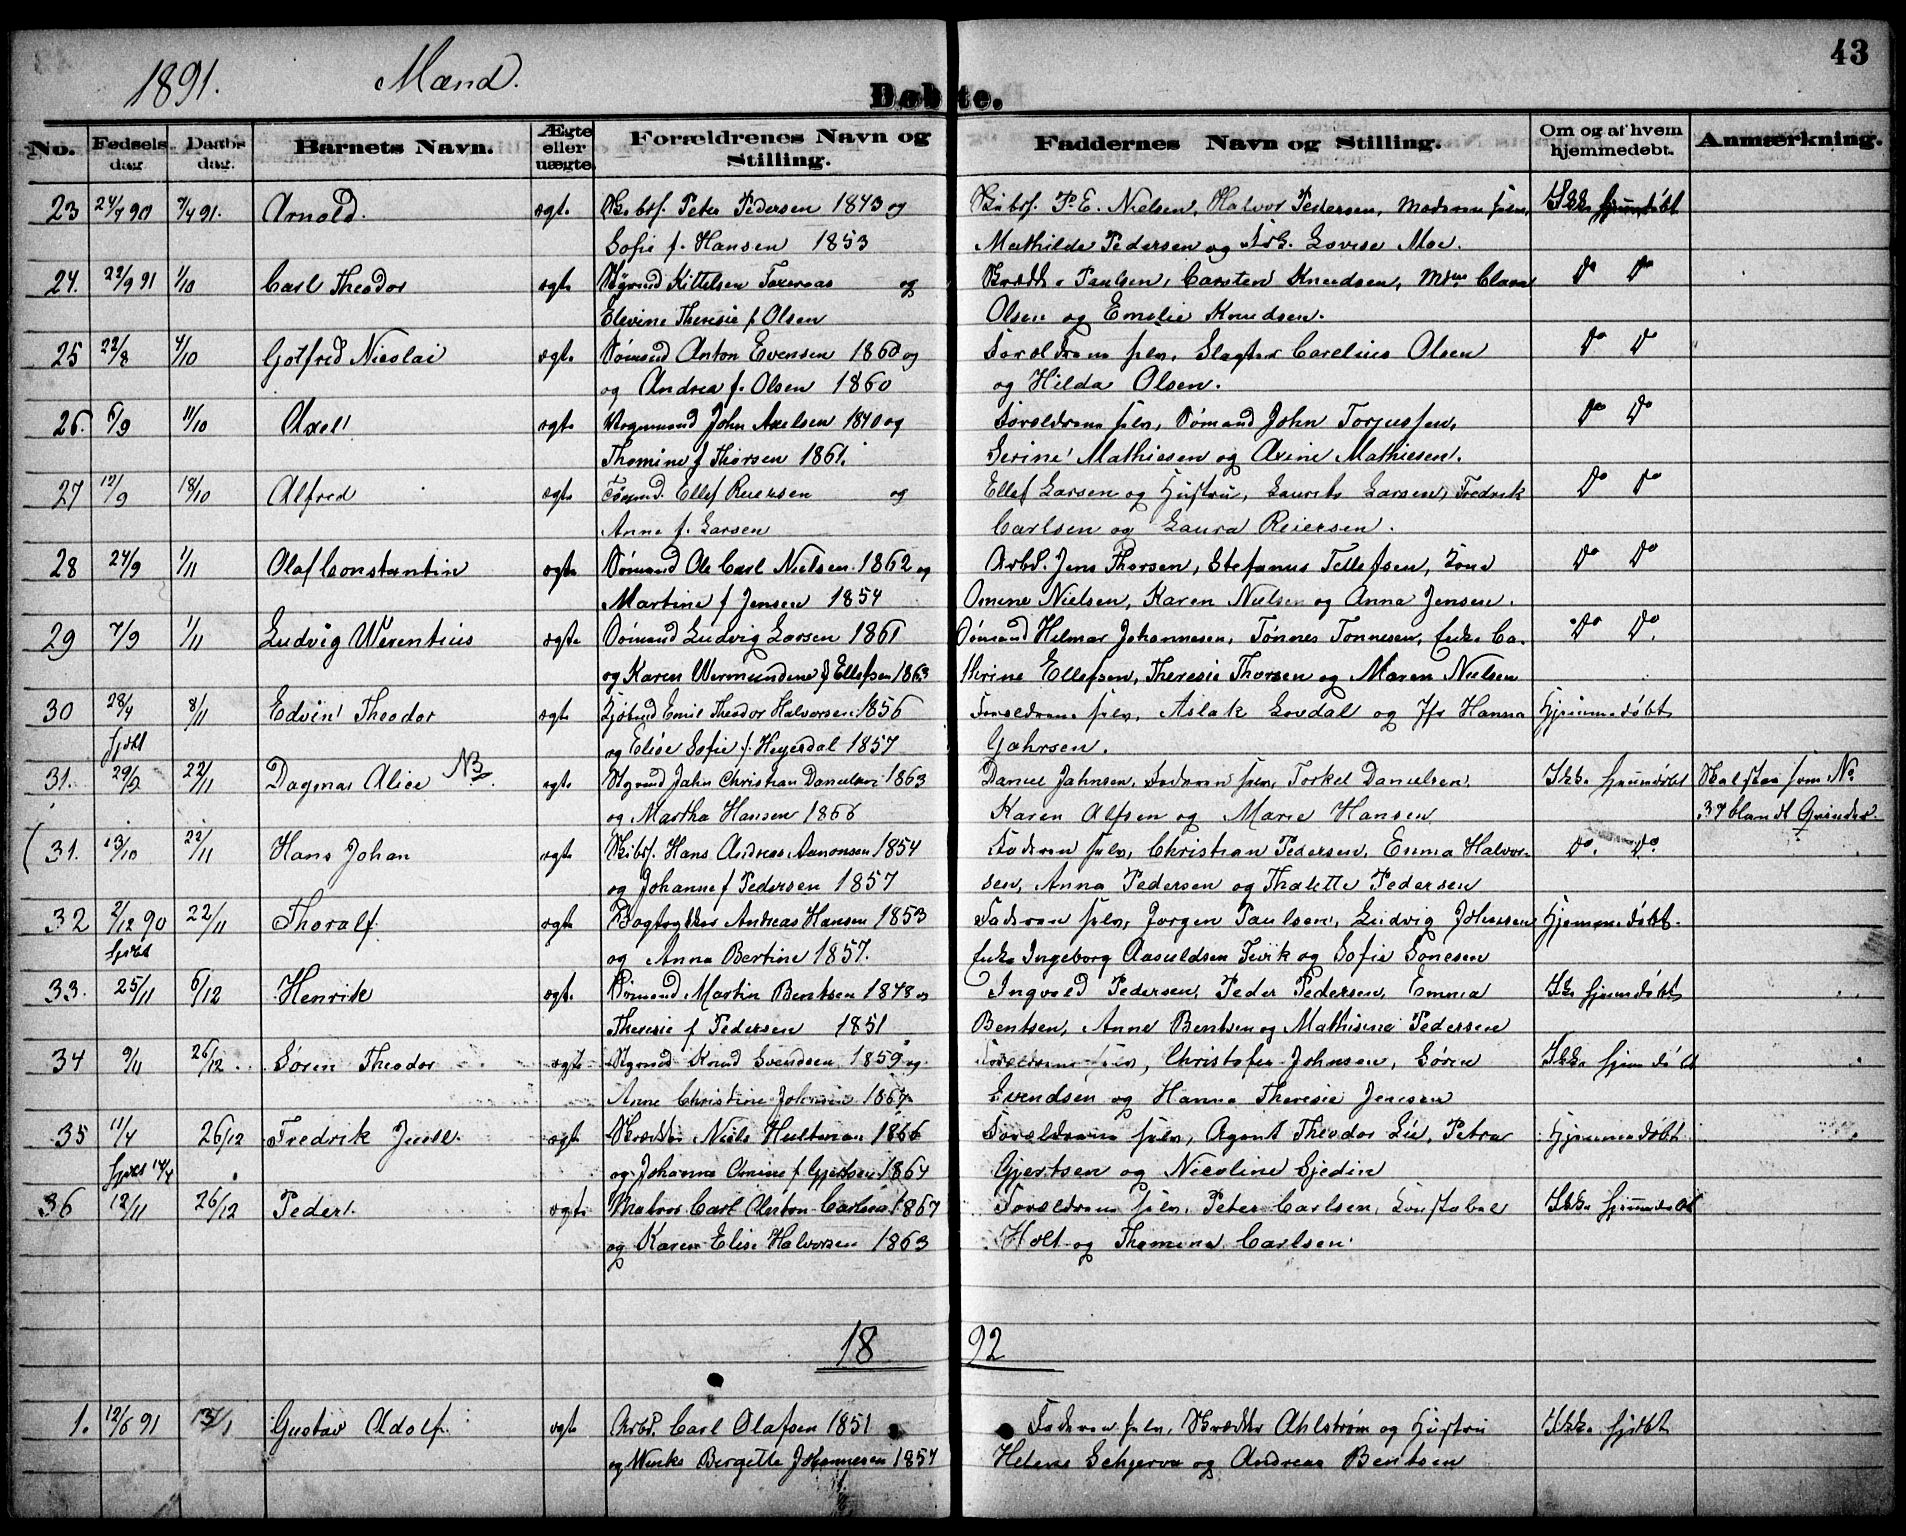 43
1891. Mænd.
Døbte.
No. Fødsels dag. Daabs dag. Barnets Navn. Ægte eller uægte. Forældrenes Navn og Stilling. Faddernes Navn og Stilling. Om og af hvem hjemmedøbt. Anmærkning.
23 24/7 90 7/4 91. Arnold. ægte Peter Pedersen 1843 og P. E. Nielsen, Halvor Pedersen, Moderen selv, Ikke hjemmedøbt
Sofie f. Hansen 1853 Mathilde Pedersen og Lovise Moe.
24. 22/9 91 1/10 Carl Theodor ægte Kittelsen og Paulsen, Carsten Knudsen, Clara Do Do
Elevine Theresie f. Olsen Olsen og Emelie Knudsen.
25 22/8 4/10 Gotfred Nicolai ægte Sømand Anton Evensen 1860 og Forældrene selv, Slagter Carelius Olsen Do Do
og Andrea f. Olsen 1860 og Hilda Olsen.
26. 6/9 11/10 Axel ægte John Axelsen 1840 og Forældrene selv, Sømand John Torjussen, Do Do
Thomine f Thorsen 1861. Serine Mathiesen og Axine Mathiesen.
27 12/9 18/10 Alfred ægte Tømmd. Ellef Reiersen og Ellef Larsen og Hustru, Laurits Larsen, Fredrik Do Do
Anne f. Larsen Carlsen og Laura Reiersen.
28 24/9 1/11 Olaf Constantin ægte Sømand Ole Carl Nielsen 1862 og Arbd. Jens Thorsen, Stefanus Tellefsen, Do Do
Martine f Jensen 1854 Omine Nielsen, Karen Nielsen og Anna Jensen.
29 7/9 1/11 Ludvig Werentius ægte Sømand Ludvig Larsen 1861 Sømand Helmar Johannesen, Tønnes Tønnesen, Enke Ca- Do Do.
og Karen Wermundine f Ellefsen 1863 thrine Ellefsen, Theresie Thorsen og Maren Nielsen
30 28/4 8/11 Edvin Theodor ægte Emil Theodor Halvorsen 1856 Forældrene selv, Aslak Lovdal og Jfr Hanna Hjemmedøbt
hjdbt og Elise Sofie f. Heyerdal 1857 Gahrsen.
31. 29/9 22/11 Dagmar Alice NB ægte Jahn Christian Danielsen 1863 Daniel Jahnsen, Faderen selv, Torkel Danielsen, Ikke hjemmedøbt som No
og Martha Hansen 1866 Karen Alfsen og Marie Hansen 37 blandt
(31. 13/10 22/11 Hans Johan ægte Hans Andreas Aanonsen 1854 Faderen selv, Christian Pedersen, Emma Halvor- Do. Do.
og Johanne f Pedersen 1857 sen, Anna Pedersen og Thalette Pedersen
32 2/12 90 22/11 Thoralf ægte Bogtrykker Andreas Hansen 1853 Faderen selv, Jørgen Paulsen, Ludvig Johnsen Hjemmedøbt.
hjdbt og Anna Bertine 1857. Enke Ingeborg og Sofie Sonesen
33. 25/11 6/12 Henrik ægte. Sømand Martin Bentsen 1848 og Ingvald Pedersen, Peder Pedersen, Emma Ikke hjemmedøbt
Theresie f Pedersen 1851 Bentsen, Anne Bentsen og Mathisine Pedersen
34 9/11 26/12 Søren Theodor ægte Knud Svendsen 1859 og Forældrene selv, Christofer Johnsen, Søren Ikke hjemmedøbt
Anne Christine Johnsen Svendsen og Hanna Theresie Jensen
35 11/4 26/12 Fredrik Juell. ægte Skrædder Niels Hultman 1866 Forældrene selv, Agent Theodor Lie, Petra Hjemmedøbt.
hjdbt 14/4 og Johanna Amine f Gjertsen 1864 Gjertsen og Nicoline Sjedin
36 12/11 26/12 Peder. ægte Matros Carl Anton Carlsen 1867 Forældrene selv, Peter Carlsen, Konstabel Ikke hjemmedøbt
og Karen Elise Halvorsen 1863 Holt og Thomine Carlsen
1892
1. 12/6 91 Gustav Adolf. ægte Arbd. Carl Olafsen 1851 Faderen selv, Skrædder Ahlstrøm og Hustru Ikke hjdbt
og Birgitte Johannesen 1857 Helene og Andreas Bentsen